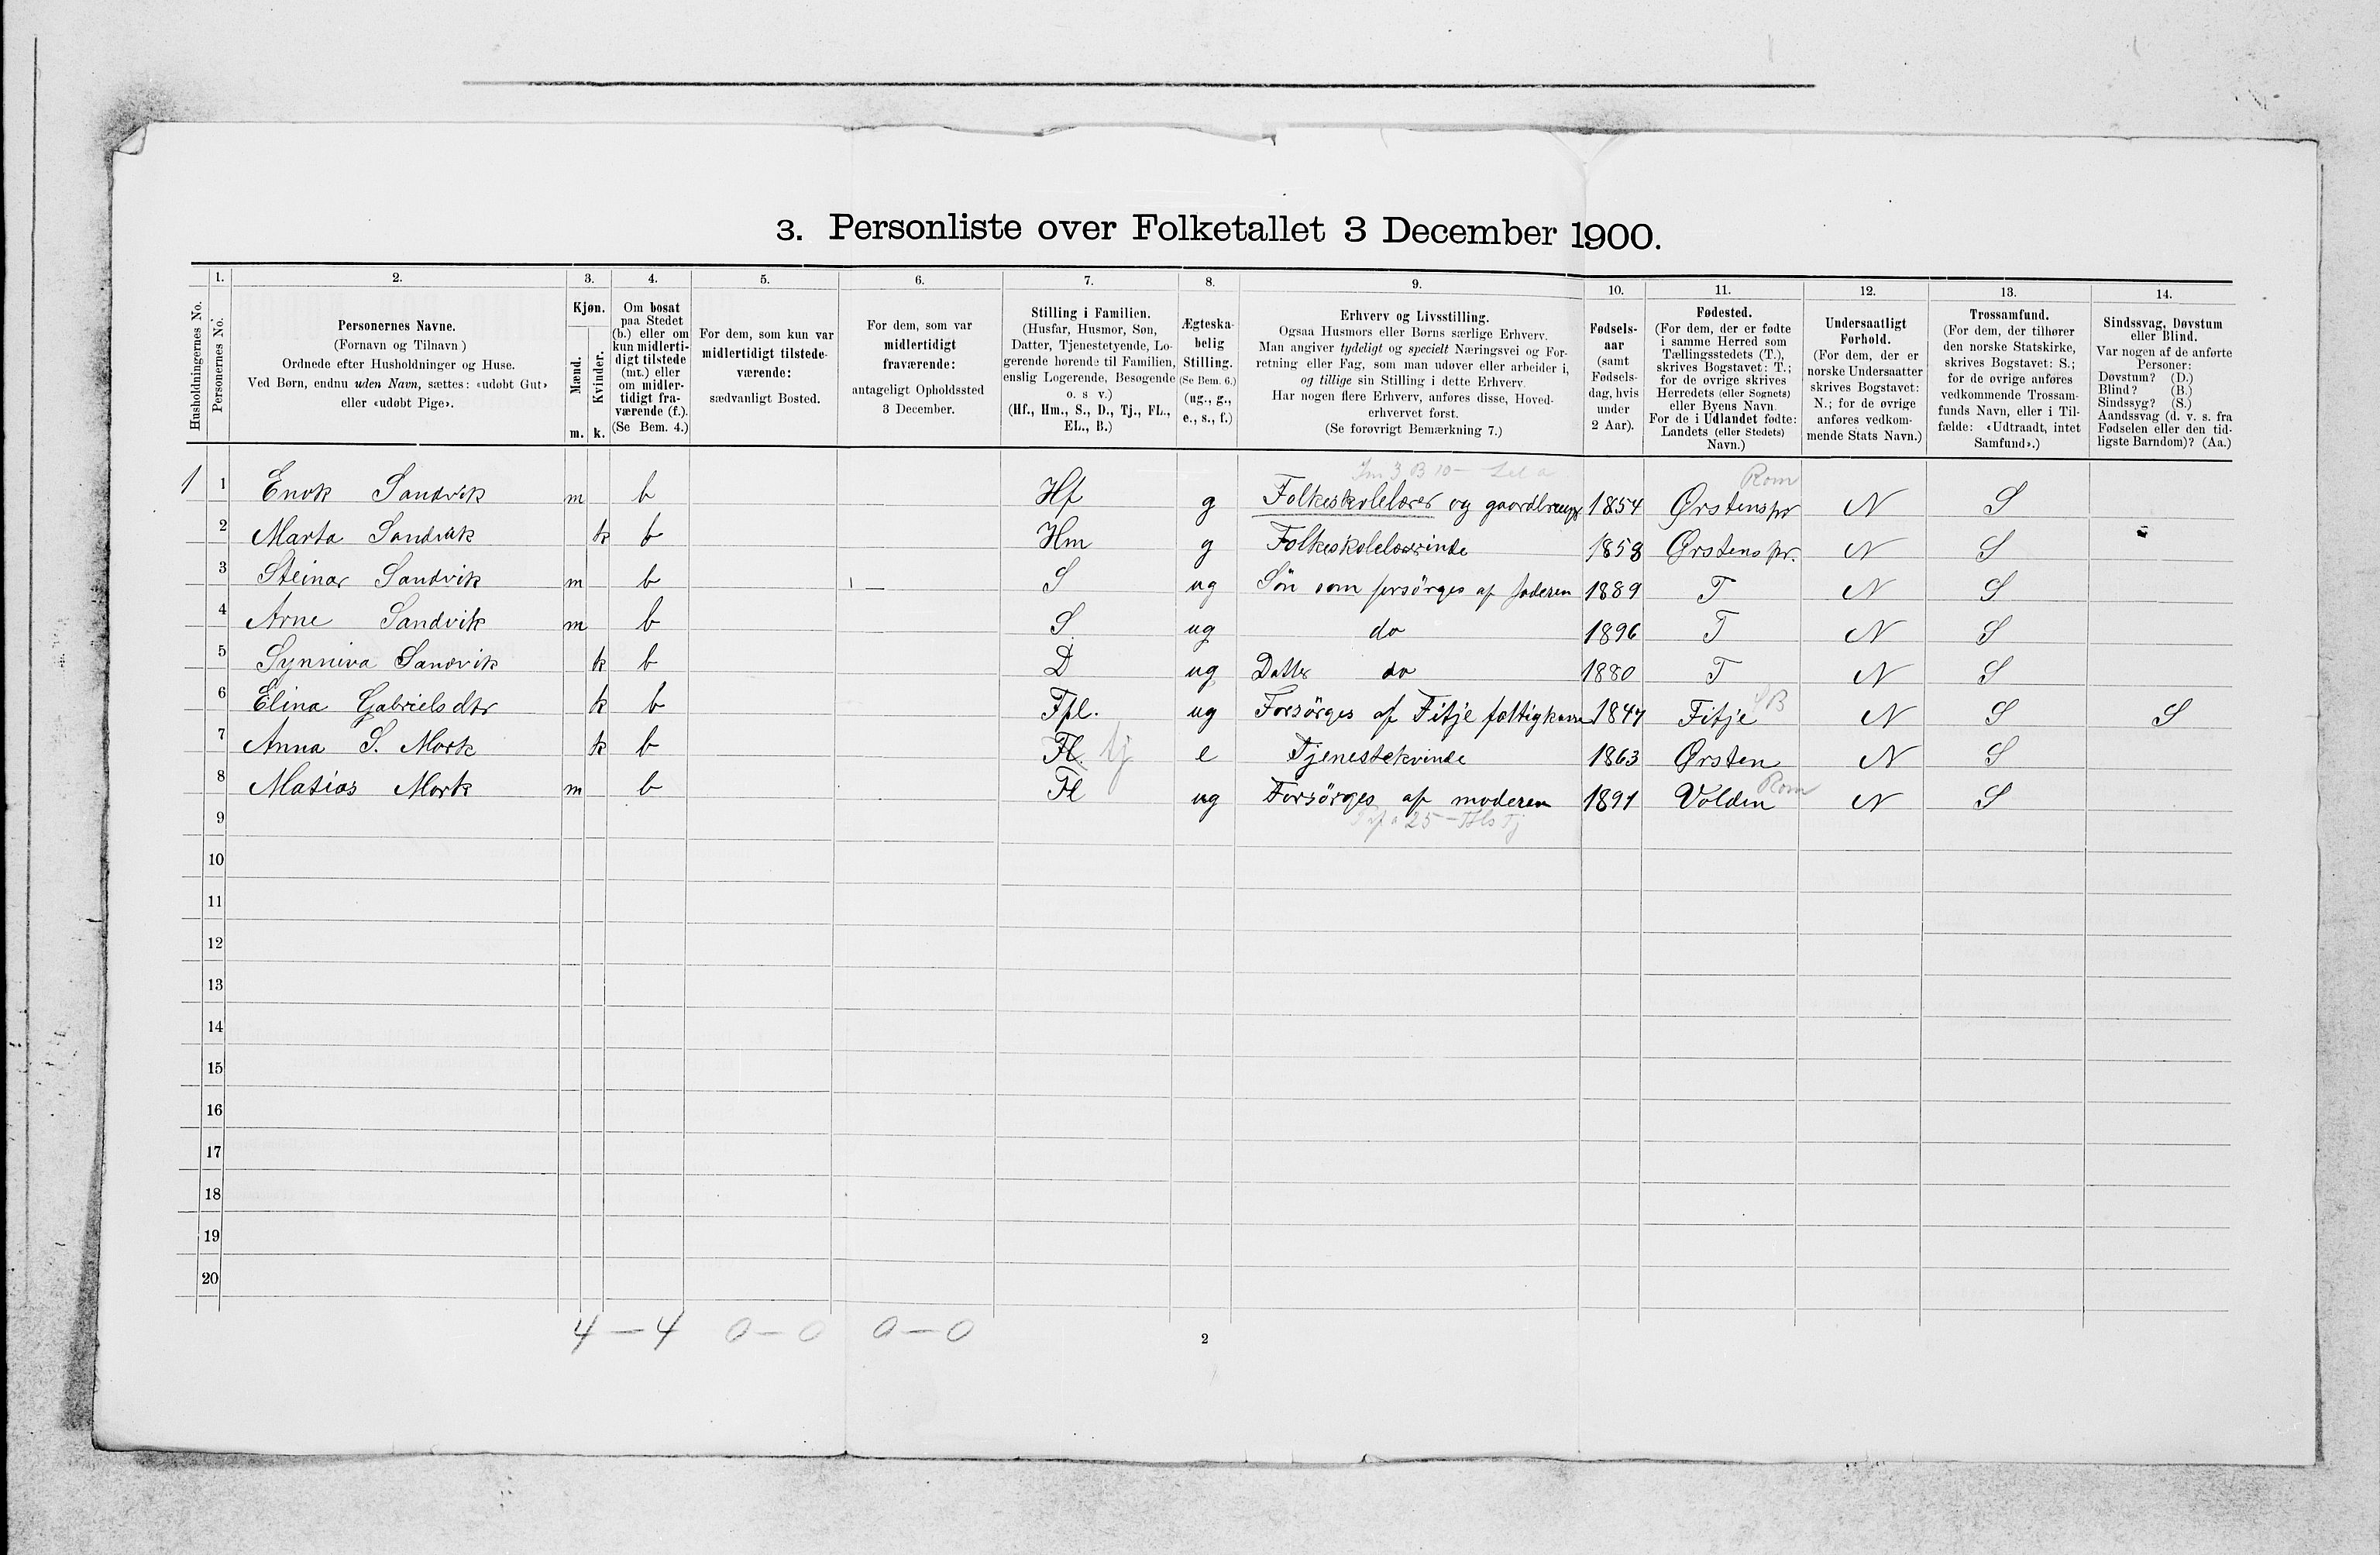 3. Personliste over Folketallet 3 December 1900.
Husholdningernes No.
1.
Personernes No.
2.
Personernes Navne.
(Fornavn og Tilnavn )
Ordnede efter Husholdninger og Huse.
Ved Børn, endnu uden Navn, sættes: «udøbt Gut»
eller «udøbt Pige».
3.
Kjøn.
Mænd.
Kvinder.
m. k.
4.
Om bosat
paa Stedet
(b.) eller om
kun midlerti-
digt tilstede
(mt.) eller
om midler-
tidigt fra-
værende (f.).
(Se Bem. 4.)
5.
For dem, som kun var
midlertidigt tilstede-
værende:
sædvanligt Bosted.
6.
For dem, som var
midlertidigt
fraværende:
antageligt Opholdssted
3 December.
7.
Stilling i Familien.
(Husfar, Husmor, Søn,
Datter, Tjenestetyende, Lo-
gerende hørende til Familien,
enslig Logerende, Besøgende
o. s v.)
(Hf., Hm., S., D., Tj., FL.,
EL., B.)
8.
Ægteska-
belig
Stilling.
(Se Bem. 6.)
(ug., g.,
e., s., f.)
9.
Erhverv og Livsstilling.
Ogsaa Husmors eller Børns særlige Erhverv.
Man angiver tydeligt og specielt Næringsvei og For-
retning eller Fag, som man udøver eller arbeider i,
og tillige sin Stilling i dette Erhverv.
Har nogen flere Erhverv, anføres disse, Hoved-
erhvervet først.
(Se forøvrigt Bemærkning 7.)
10.
Fødsels-
aar
(samt
Fødsels-
dag, hvis
under
2 Aar).
11.
Fødested.
(For dem, der er fødte
i samme Herred som
Tællingsstedets (T.),
skrives Bogstavet: T.;
for de øvrige skrives
Herredets (eller Sognets)
eller Byens Navn.
For de i Udlandet fødte:
Landets (eller Stedets)
Navn.)
12.
Undersaatligt
Forhold.
(For dem, der er
norske Undersaatter
skrives Bogstavet:
N.; for de øvrige
anføres vedkom-
mende Stats Navn.)
13.
Trossamfund.
(For dem, der tilhører
den norske Statskirke,
skrives Bogstavet: S.;
for de øvrige anføres
vedkommende Trossam-
funds Navn, eller i Til-
fælde: «Udtraadt, intet
Samfund».)
14.
Sindssvag, Døvstum
eller Blind.
Var nogen af de anførte
Personer:
Døvstum? (D.)
Blind? (B.)
Sindssyg? (S.)
Aandssvag (d. v. s. fra
Fødselen eller den tid-
ligste Barndom)? (Aa.)
Rom
1 1 Enok Sandvik m b Hf g Folkeskolelærer og gaardbruger 1854 Ørstenspr N S
2 Marta Sandvik k b Hm g Folkeskolelærerinde 1858 Ørstenspr. N S
3 Steinar Sandvik m b S ug Sön som forsörges af faderen 1889 T N S
4 Arne Sandvik m b S ug do 1896 T N S
5 Synniva Sandvik k b D ug Datter do 1880 T N S
6 Elina Gabrielsdtr k b Fpl. ug Forsörges af Fitje fattigkasse 1847 Fitje SB N S S
7 Anna S. Mork k b Fl. tj e Tjenestekvinde 1863 Ørsten N S
8 Matias Mork m b Fl ug Forsörges af moderen 1891 Volden Rom N S
9
10
11
12
13
14
15
16
17
18
19
20
4 — 4 0 — 0 0 — 0
2